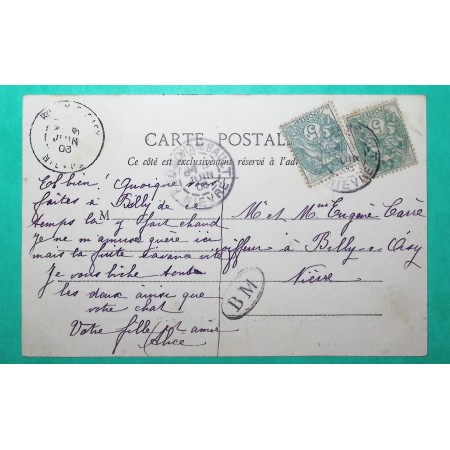 CARTE POSTALE
Ce côté est exclusivement réservé à l'adr
Eh bien! Quoique vous
faites à Billy de ce
temps la y fait chaud
M
Je ne m'amuse guère ici
mais la fuite s'avance vite
Je vous biche toute
les deux ainsi que
votre chat
Votre fille et amie
Alice
M et Mme Eugène Carré
coiffeur à Billy-Oisy
Nièvre
BM
JUIN
08
NIEVRE
JUIN
08
NIEVRE
NIEVRE
5c
5c